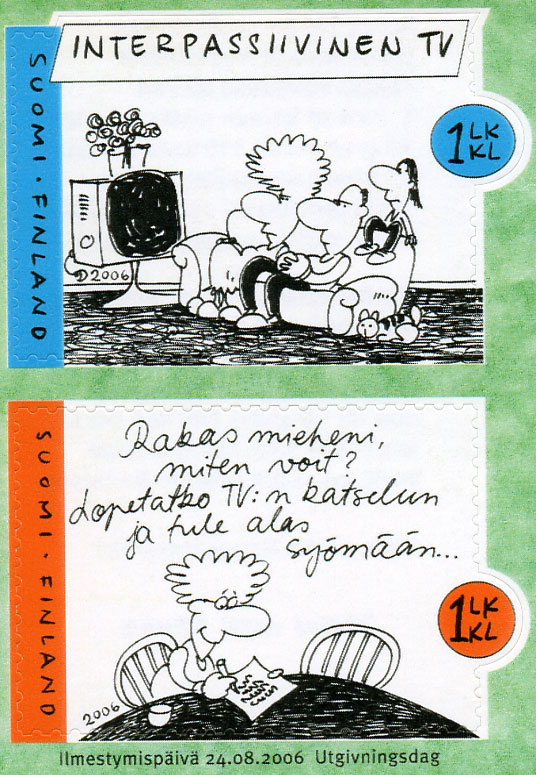 INTERPASSIIVINEN TV
SUOMI · FINLAND
1 LK
KL
D 2006
Rakas mieheni,
miten voit?
Lopetatko TV:n katselun
ja tule alas
syömään...
SUOMI · FINLAND
1 LK
KL
2006
Ilmestymispäivä 24.08.2006 Utgivningsdag